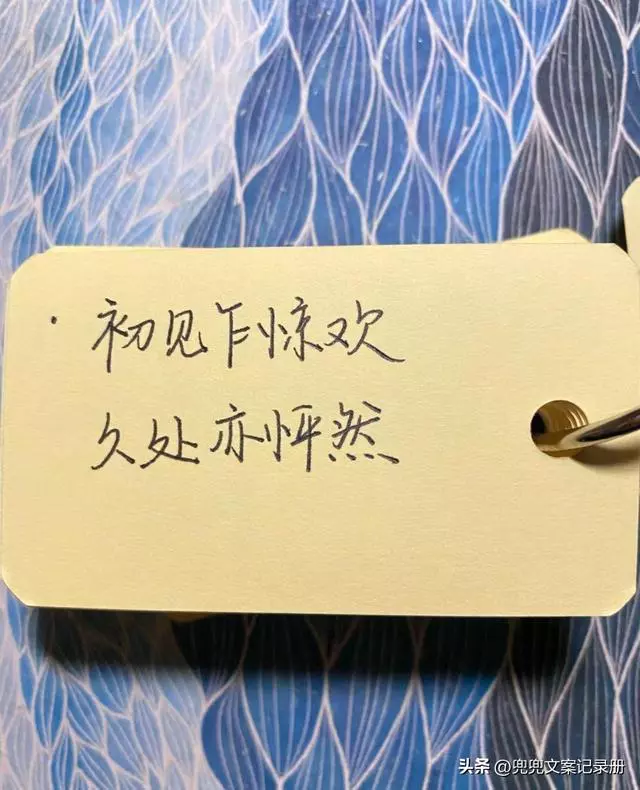 · 初见乍惊欢
久处亦怦然
头条 @兜兜文案记录册